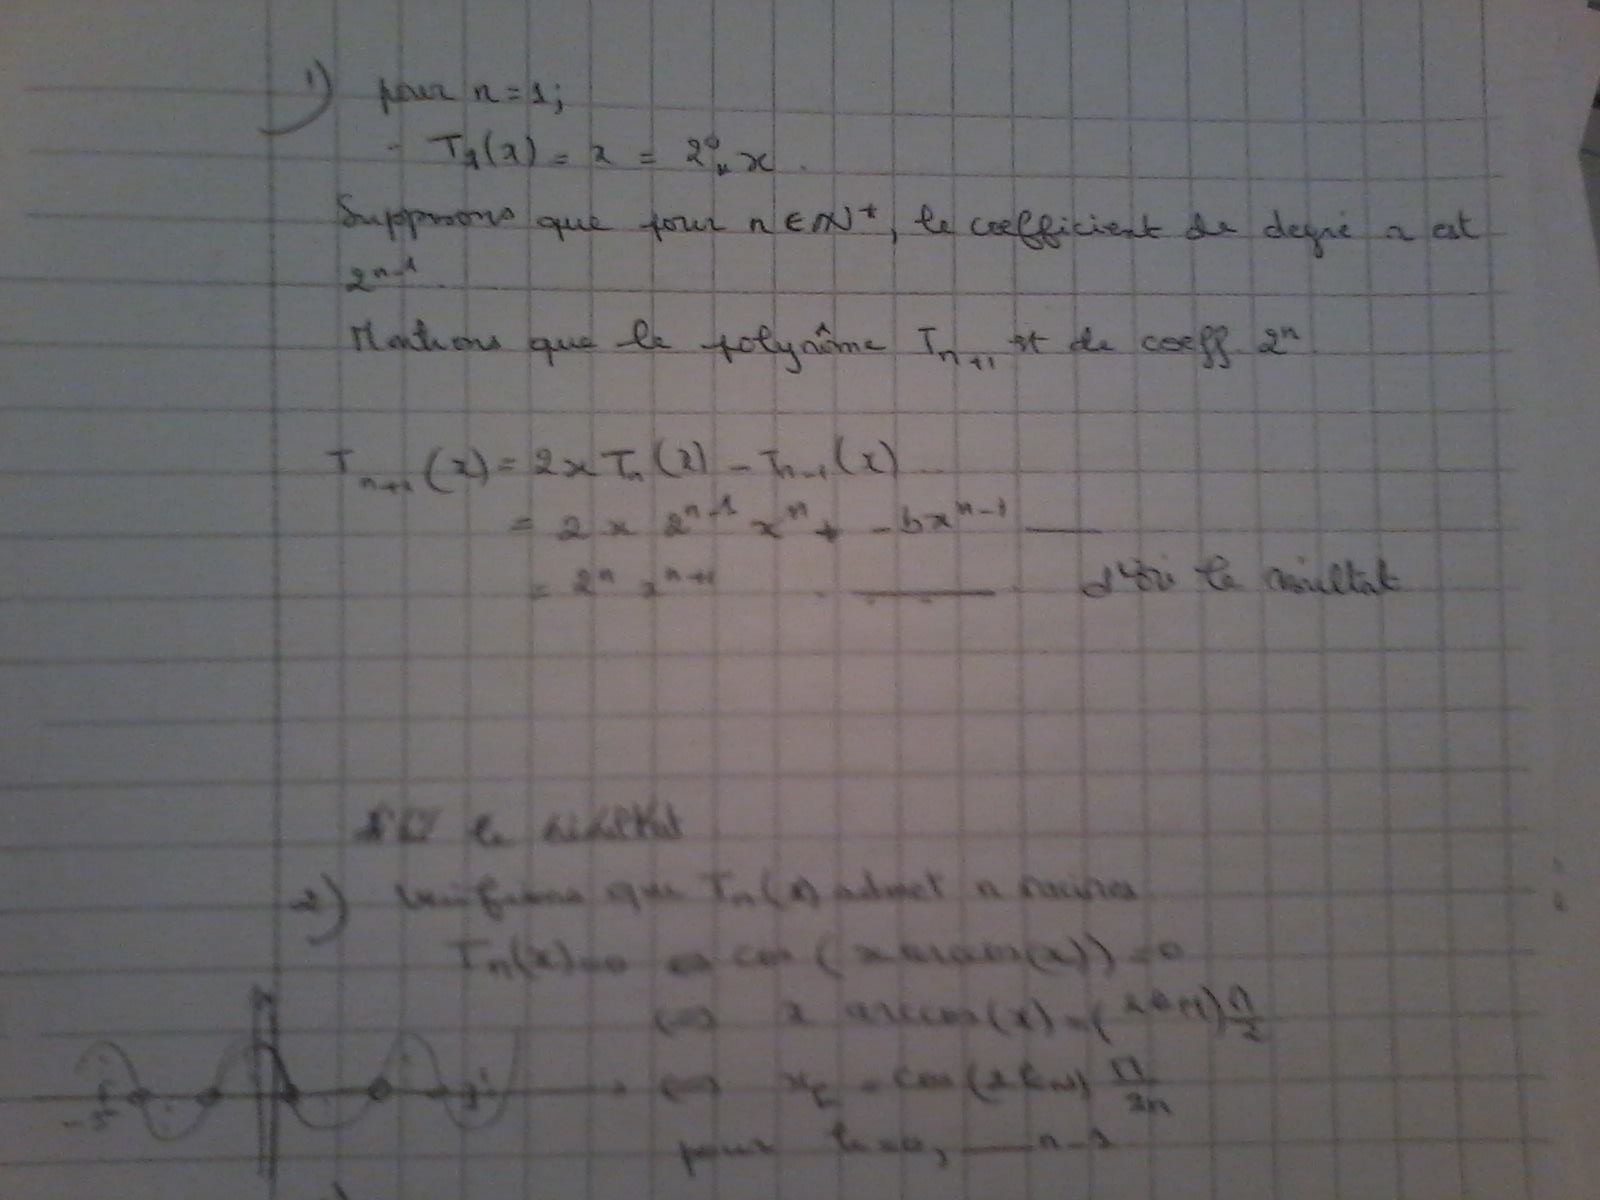 1) pour n = 1;
- T1(x) = x = 2^0 × x.
Supposons que pour n ∈ IN*, le coefficient de degré n est
2^{n-1}.
Montrons que le polynôme T_{n+1} est de coeff 2^n
T_{n+1}(x) = 2x T_n(x) - T_{n-1}(x)
= 2 x 2^{n-1} x^n + - b x^{n-1} ___
= 2^n x^{n+1} ___ d'où le résultat
le
2) Verifions que T_n(x) admet n racines
T_n(x) = 0 ⇔ cos(x arccos(x)) = 0
⇔ x arccos(x) = (2k+1) π/2
⇔ x_k = cos(2k+1) π/2n
-5
pour k=0, ___ n-1